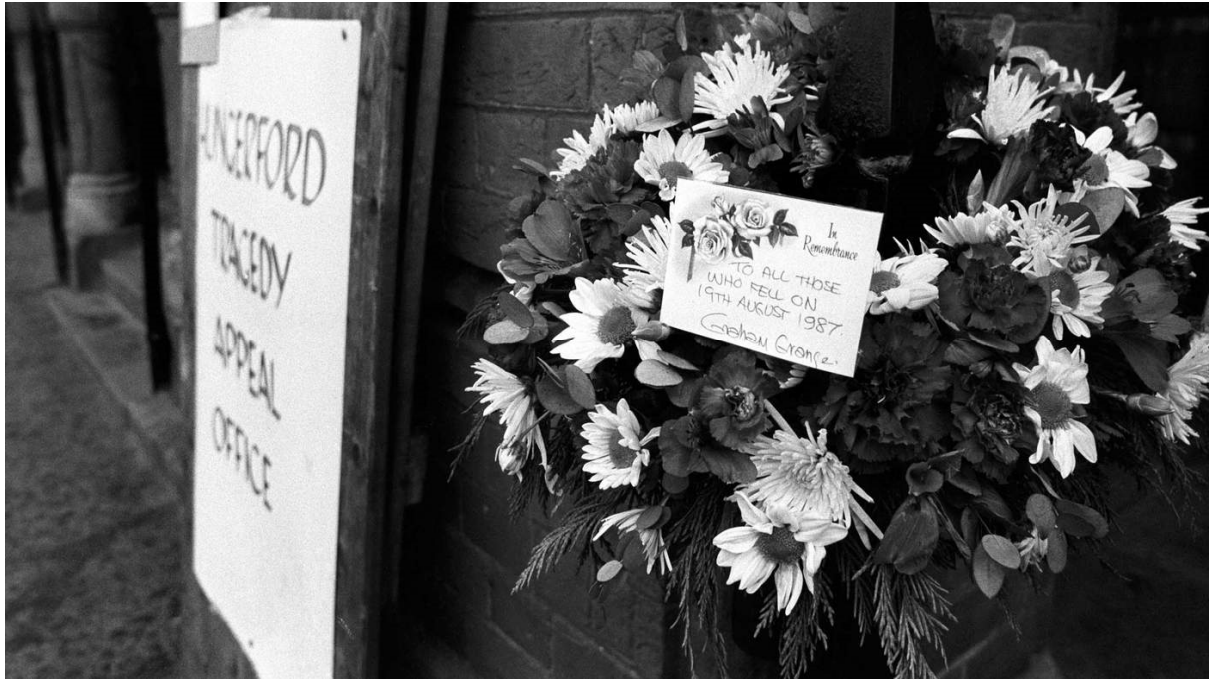 HUNGERFORD
TRAGEDY
APPEAL
OFFICE
In
Remembrance
TO ALL THOSE
WHO FELL ON
19TH AUGUST 1987.
Graham Grange.